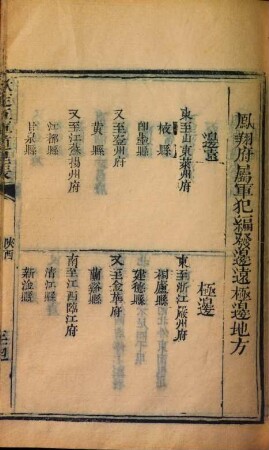 鳳翔府屬軍犯編發邊遠極邊地方
邊遠
東至山東萊州府
掖縣
卽墨縣
又至登州府
黃縣
又至江蘇揚州府
江都縣
甘泉縣
極邊
東至浙江嚴州府
桐廬縣
建德縣
又至金華府
蘭谿縣
南至江西臨江府
清江縣
新淦縣
陝西